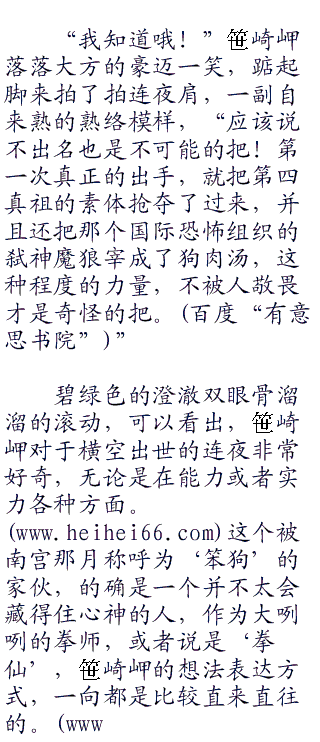 “我知道哦！”笹崎岬
落落大方的豪迈一笑，踮起
脚来拍了拍连夜肩，一副自
来熟的熟络模样，“应该说
不出名也是不可能的把！第
一次真正的出手，就把第四
真祖的素体抢夺了过来，并
且还把那个国际恐怖组织的
弑神魔狼宰成了狗肉汤，这
种程度的力量，不被人敬畏
才是奇怪的把。(百度“有意
思书院”)”
碧绿色的澄澈双眼骨溜
溜的滚动，可以看出，笹崎
岬对于横空出世的连夜非常
好奇，无论是在能力或者实
力各种方面。
(www.heihei66.com)这个被
南宫那月称呼为‘笨狗’的
家伙，的确是一个并不太会
藏得住心神的人，作为大咧
咧的拳师，或者说是‘拳
仙’，笹崎岬的想法表达方
式，一向都是比较直来直往
的。(www